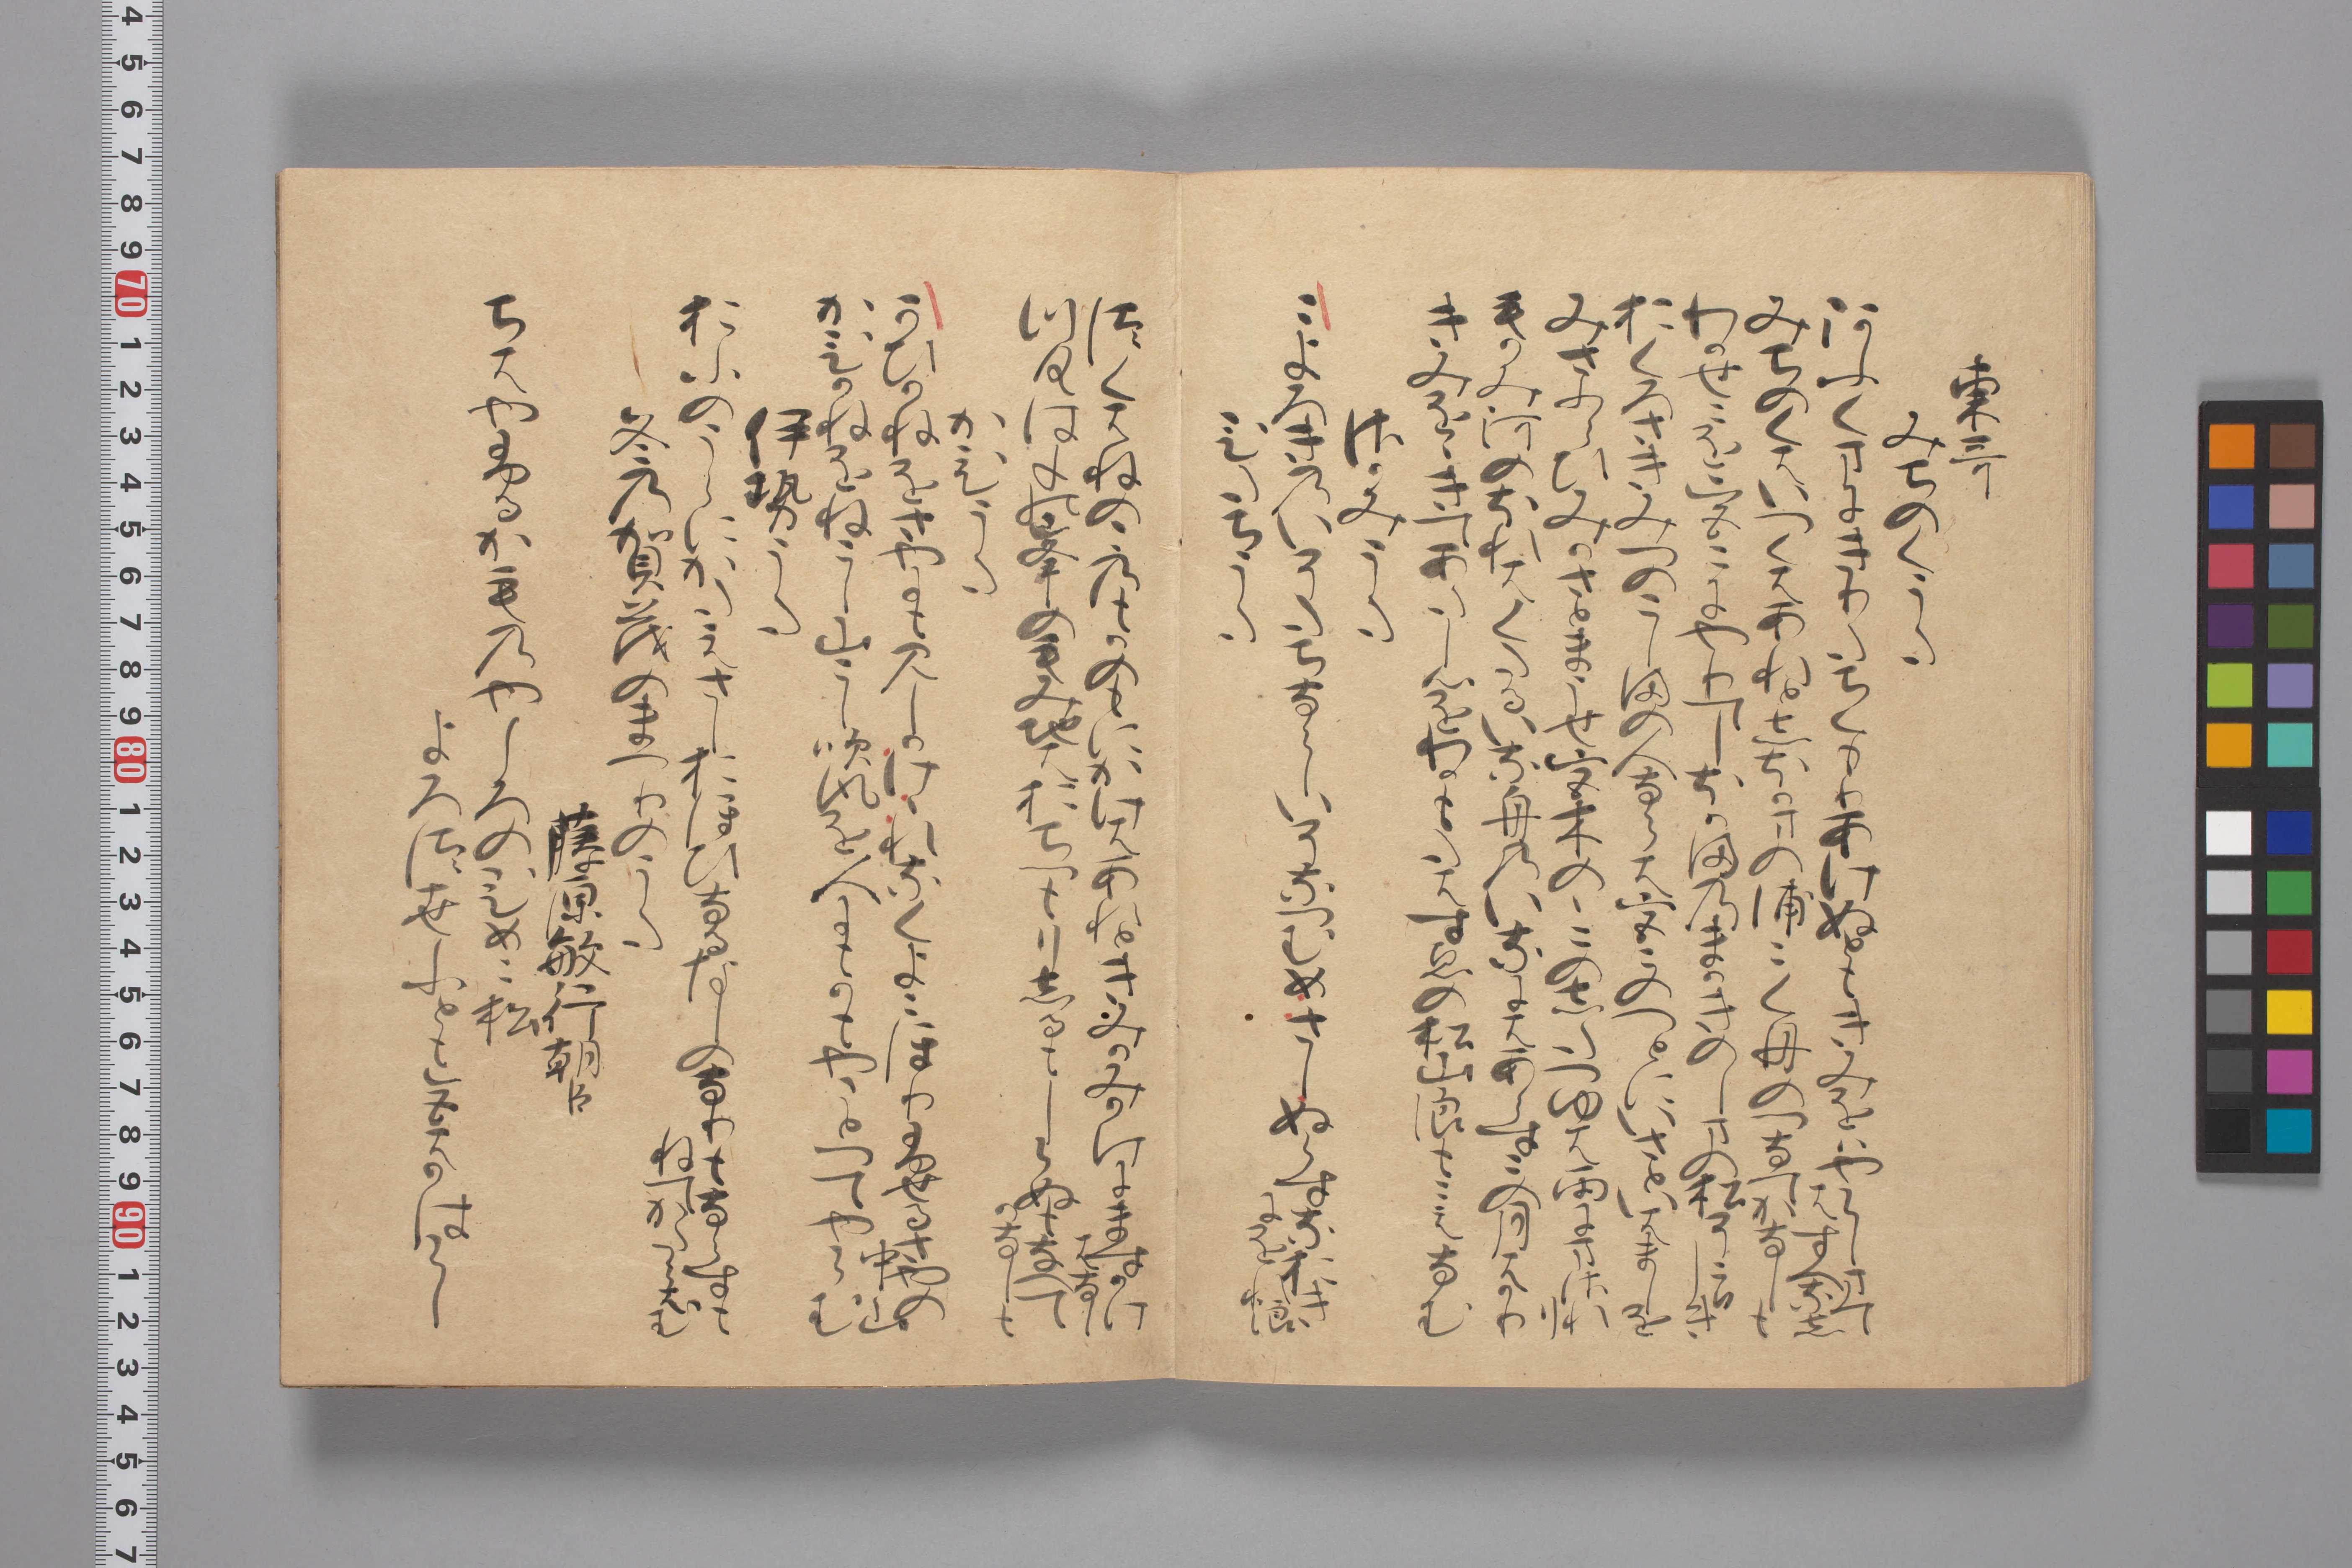 東哥
みちのくうた
あふくまに霧たちくもりあけぬとも君をはやらしまてはすへなし
みちのくはいつくはあれとしほかまの浦こく舟のつなてかなしも
わかせこを宮こにやりてしほかまのまかきのしまの松そこひしき
をくろさきみつのこしまの人ならは宮このつとにいさといはましを
みさふらひみかさと申せ宮木のゝこのしたつゆは雨にまされり
もかみ河のほれはくたるいな舟のいなにはあらすこの月はかり
君をおきてあたし心をわかもたはすゑの松山浪もこえなん
さかみうた
こよろきのいそたちならしいそなつむめさしぬらすなおきにをれ浪
ひたちうた
つくはねのこのもかのもにかけはあれと君かみかけにますかけはなし
つくはねの峯のもみちはおちつもりしるもしらぬもなへてかなしも
かひうた
かひかねをさやにも見しかけゝれなくよこほりふせるさやの中山
かひかねをねこし山こしふく風を人にもかもやことつてやらん
伊勢うた
おふのうらにかたえさしおほひなるなしのなりもならすもねてかたらはん
冬の賀茂のまつりのうた
藤原敏行朝臣
ちはやふるかものやしろのひめこ松
よろつ世ふともいろはかはらし